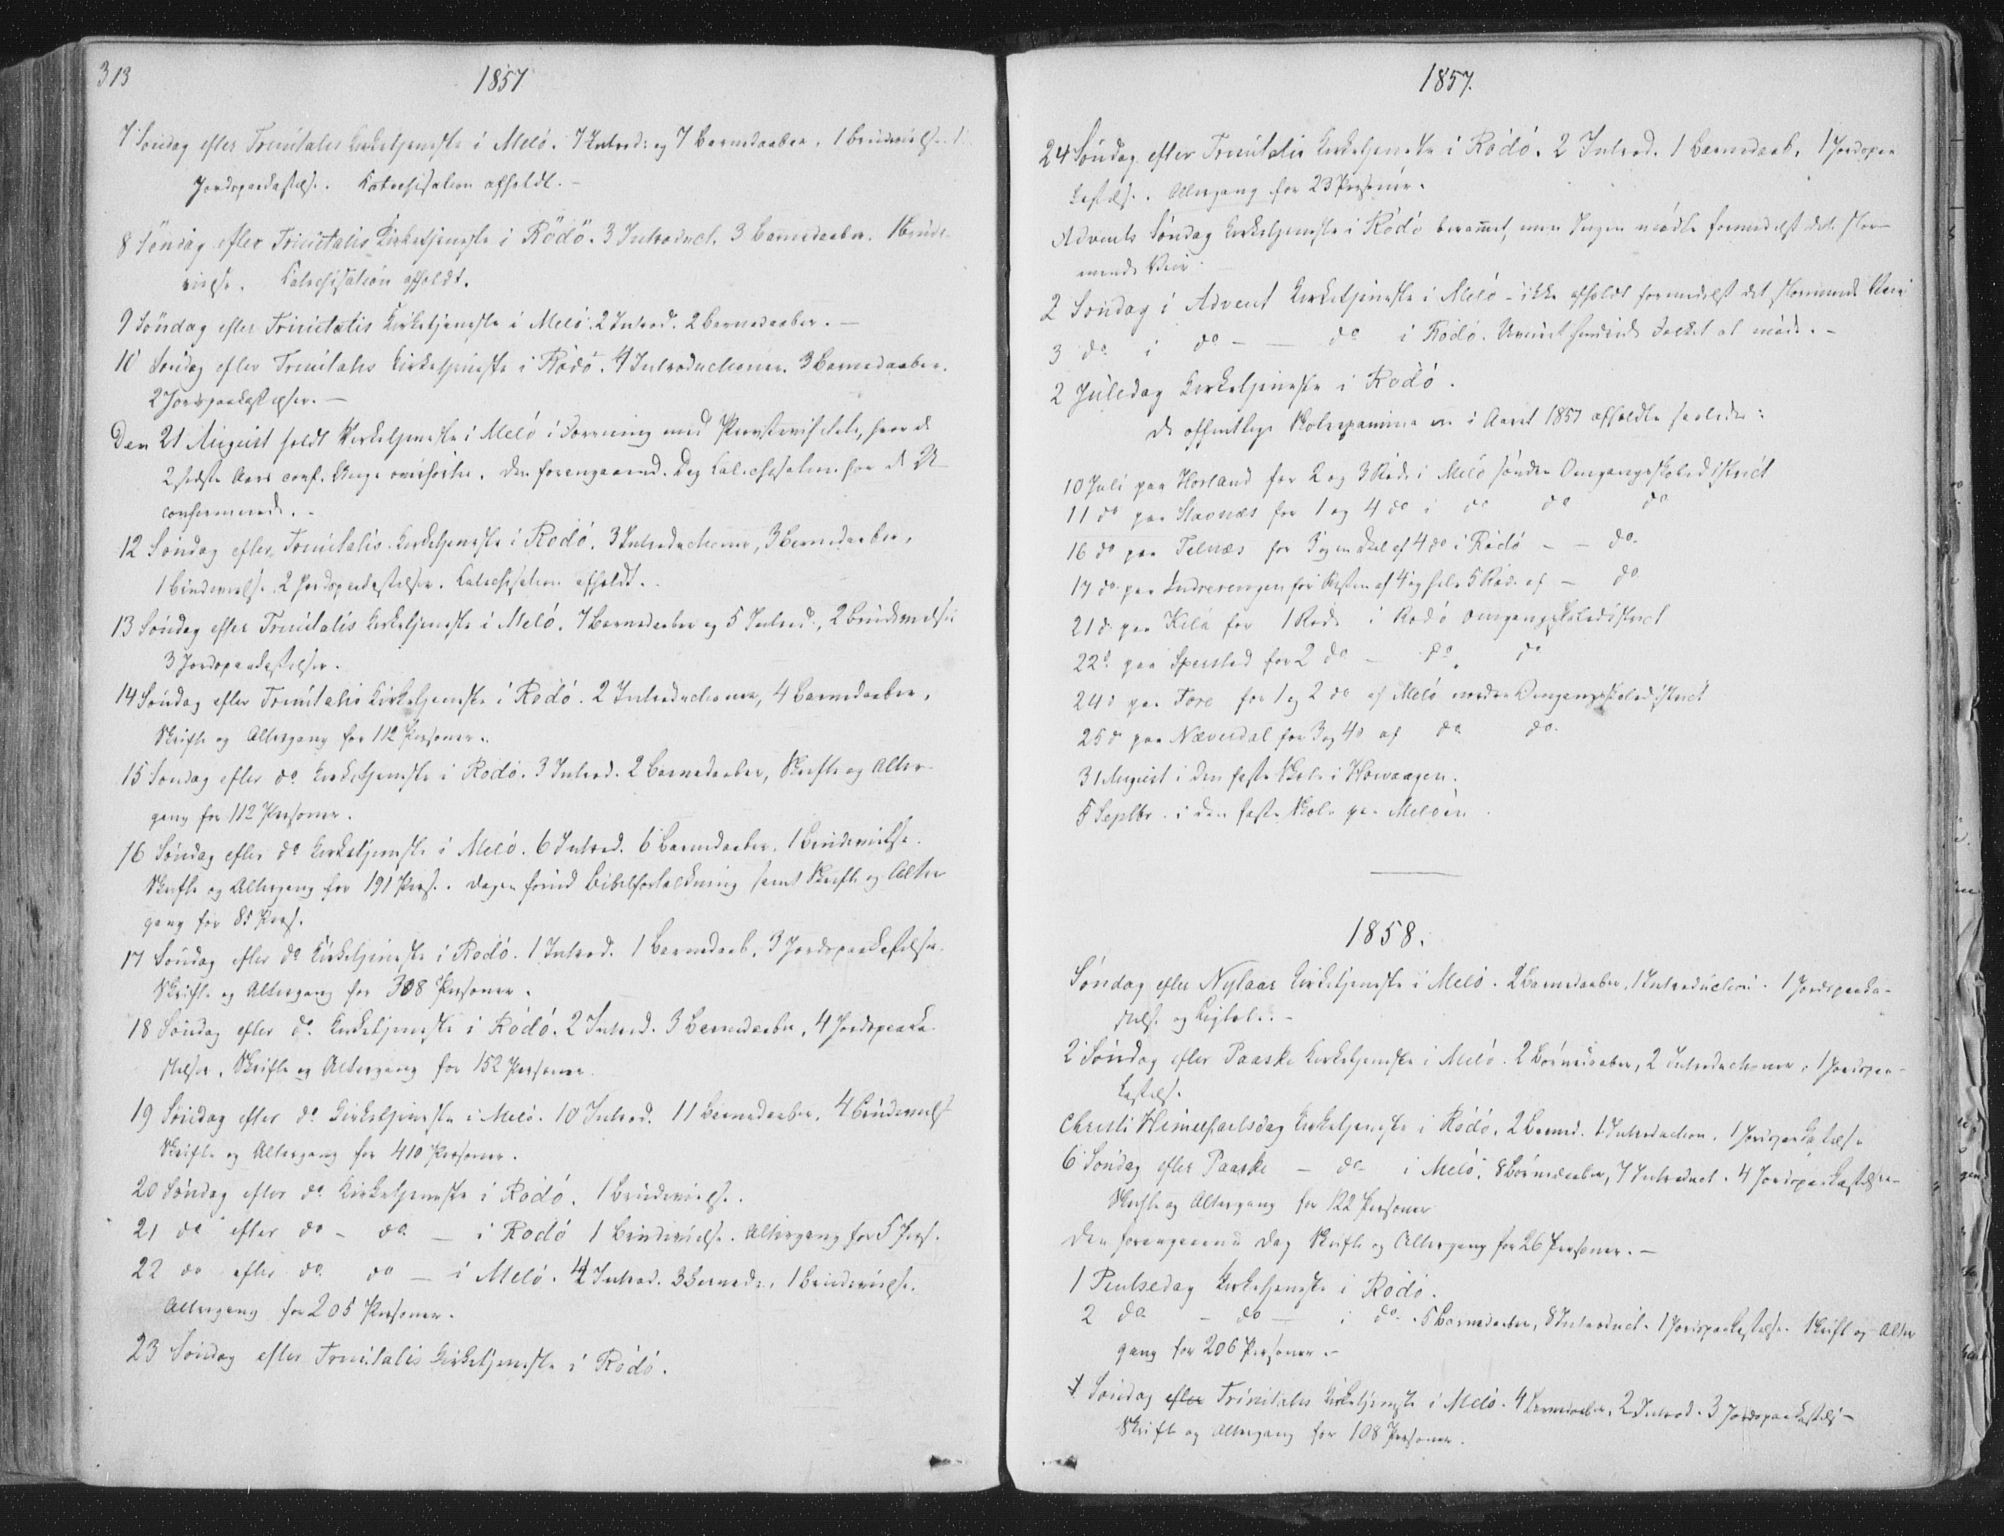 313
1857
7 Søndag efter Trinitatis Kirketjeneste i Melö. 7 Introd: og 7 Barnedaaber. 1 Brudevielse. 1
Jordspaakastelse. Catechisation afholdt. -
8 Söndag efter Trinitatis Kirketjeneste i Rödö. 3 Introduct. 3 Barnedaaber. 1 Brude-
vielse. Catechisation afholdt.
9 Söndag efter Trinitatis Kirketjeneste i Melö. 2 Introd. 2 Barnedaaber. -
10 Söndag efter Trinitatis Kirketjeneste i Rödö. 4 Introductioner. 3 Barnedaaber.
2 Jordspaakastelser. -
Den 21 August holdt Kirketjeneste i Melö i Forening med Provstevisitats, hvor de
2 sidste Aars conf. Unge overhörtes. Den foregaaende Dag Catechisation for de U-
confirmerede. -
12 Söndag efter Trinitatis Kirketjeneste i Rödö. 3 Introductioner, 3 Barnedaaber,
1 Brudevielse. 2 Jordspaakastelser. Catechisation afholdt. -
13 Söndag efter Trinitatis Kirketjeneste i Melö. 7 Barnedaaber og 5 Introd., 2 Brudevielser
3 Jordspaakastelser.
14 Söndag efter Trinitatis Kirketjeneste i Rödö. 2 Introductioner, 4 Barnedaaber,
Skrifte og Altergang for 112 Personer.
15 Söndag efter do Kirketjeneste i Rödö. 3 Introd. 2 Barnedaaber, Skrifte og Alter-
gang for 112 Personer.
16 Söndag efter do Kirketjeneste i Melö. 6 Introd. 6 Barnedaaber. 1 Brudevielse.
Skrifte og Altergang for 191 Pers. Dagen forud Bibelfortolkning samt Skrifte og Alter
gang for 85 Pers.
17 Söndag efter do Kirketjeneste i Rödö. 1 Introd. 1 Barnedaab, 3 Jordspaakastelser.
Skrifte og Altergang for 308 Personer.
18 Söndag efter do Kirketjeneste i Rödö. 2 Introd. 3 Barnedaaber, 4 Jordspaaka-
stelser. Skrifte og Altergang for 152 Personer.
19 Söndag efter do Kirketjeneste i Melö. 10 Introd. 11 Barnedaaber. 4 Brudevielser
Skrifte og Altergang for 410 Personer.
20 Söndag efter do Kirketjeneste i Rödö. 1 Brudevielse.
21 do efter do - do - i Rödö 1 Brudevielse. Altergang for 5 Pers.
22 do efter do do - i Melö. 4 Introd. 3 Barned., 1 Brudevielse.
Altergang for 205 Personer.
23 Söndag efter Trinitatis Kirketjeneste i Rödö.
1857.
24 Söndag efter Trinitatis Kirketjeneste i Rödö. 2 Introd. 1 Barnedaab. 1 Jordspaa
kastelse. Altergang for 23 Personer.
Advents Söndag Kirketjeneste i Rödö berammet, men Ingen mødte formedelst det stor-
mende Veir.
2 Söndag i Advent Kirketjeneste i Melö - ikke afholdt formedelst det stormende Veir
3 do i do - - do i Rödö. Uveiret hindrede Folket at møde. -
2 Juledag Kirketjeneste i Rödö.
De offentlige Skoleexamina ere i Aaret 1857 afholdte saaledes:
10 Juli paa Horland for 2 og 3 Rode i Melö söndre Omgangsskoledistrict
11 do paa Stavnæs for 1 og 4 do i do do do
16 do paa Telnæs for 3 og en Deel af 4 do i Rödö - - do
17 do paa Indrerengen for Resten af 4 og hele 5 Rode af - do
21 d. paa Kila for 1 Rode i Rödö Omgangsskoledistrict
22 d. paa Sperstad for 2 do - do. do
24 d paa Fore for 1 og 2 do af Melö nordre Omgangsskoledistrict
25 d paa Næverdal for 3 og 4 do af do do.
31 August i den faste Skole i Haavaagen.
5 Septbr. i den faste Skole paa Melöen.
1858.
Söndag efter Nytaar Kirketjeneste i Melö. 2 Barnedaaber, 1 Introduction. 1 Jordspaaka-
stelse og Ligtale. -
2 Söndag efter Paaske Kirketjeneste i Melö. 2 Börnedaaber, 2 Introductioner, 1 Jordspaa-
kastelse.
Christi Himmelfartsdag Kirketjeneste i Rödö. 2 Barned. 1 Introduction. 1 Jordspaakastelse
6 Söndag efter Paaske - do - i Melö. 8 Börnedaaber, 7 Introduct. 4 Jordspaakastelser -
Skrifte og Altergang for 122 Personer
Den foregaaende Dag Skrifte og Altergang for 26 Personer. -
1 Pentsedag Kirketjeneste i Rödö.
2 do - do - i do. 5 Barnedaaber, 8 Introduct. 1 Jordspaakastelse. Skrift og Alter
gang for 206 Personer. -
Söndag efter Trinitatis Kirketjeneste i Melö. 4 Barnedaaber, 2 Introd. 3 Jordspaakastels -
Skrifte og Altergang for 108 Personer.